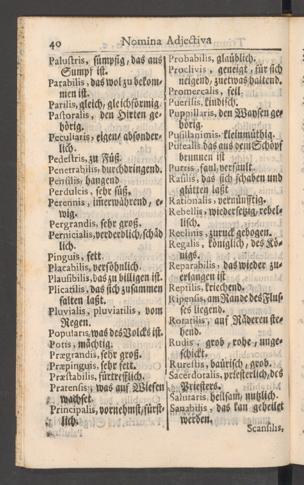 40 Nomina Adjectiva
Palustris, sümpfig, das aus
Sumpf ist.
Parabilis, das wol zu bekom-
men ist.
Parilis, gleich, gleichförmig.
Pastoralis, den Hirten ge-
hörig.
Peculiaris, eigen, absonder-
lich.
Pedestris, zu Füß.
Penetrabilis, durchdringend.
Pensilis, hangend.
Perdulcis, sehr süß.
Perennis, immerwährend, e-
wig.
Pergrandis, sehr groß.
Pernicialis, verderblich, schäd
lich.
Pinguis, fett.
Placabilis, versöhnlich.
Plausibilis, das zu billigen ist.
Plicatilis, das sich zusammen
falten laßt.
Pluvialis, pluviatilis, vom
Regen.
Popularis, was des Volcks ist.
Potis, mächtig.
Prægrandis, sehr groß.
Præpinguis, sehr fett.
Præstabilis, fürtrefflich.
Pratensis, was auf Wiesen
wachset.
Principalis, vornehmst, fürst-
lich.
Probabilis, glaublich.
Proclivis, geneigt, für sich
neigend, zuetwas haltend.
Promercalis, feil.
Puerilis, kindisch.
Pupillaris, den Waysen ge-
hörig.
Pusillanimis, kleinmüthig.
Putealis, das aus dem Schöpf
brunnen ist
Putris, faul, verfault.
Rasilis, das sich schaben und
glätten laßt
Rationalis, vernünfftig.
Rebellis, wiedersetzig, rebel-
lisch.
Reclinis, zuruck gebogen.
Regalis, königlich, des Kö-
nigs.
Reparabilis, das wieder zu-
erlangen ist
Reptilis, kriechend.
Ripensis, am Rande des Flus-
ses liegend.
Rotatilis, auf Räderen ste-
hend.
Rudis, grob, rohe, unge-
schickt.
Rurestris, baürisch, grob.
Sacerdotalis, priesterlich, des
Priesters.
Salutaris, heilsam, nutzlich.
Sanabilis, das kan geheilet
werden.
Scansilis,